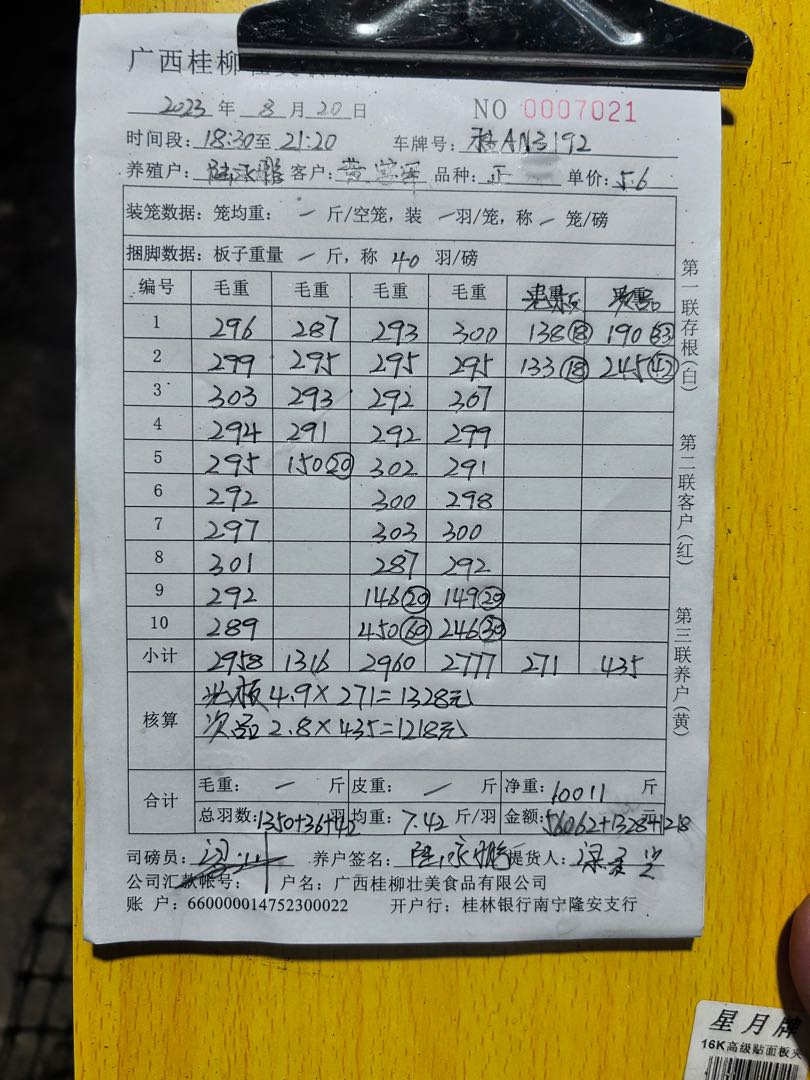 广西桂柳壮美
2023 年 8 月 20 日 NO 0007021
时间段：18:30至 21:20 车牌号：桂AN3192
养殖户：陆永鹏 客户：黄 品种：正 单价：5.6
装笼数据：笼均重：一 斤/空笼，装 一羽/笼，称 一 笼/磅
捆脚数据：板子重量 一 斤，称 40 羽/磅
编号 毛重 毛重 毛重 毛重
1 296 287 293 300 138⑱ 190 63
2 299 295 295 295 133⑱ 245㊷
3 303 293 292 307
4 294 291 292 299
5 295 150⑳ 302 291
6 292 300 298
7 297 303 300
8 301 287 292
9 292 146⑳ 149⑳
10 289 450 60 246
小计 2958 1316 2960 2777 271 435
核算 光板 4.9×271=1328元
次品 2.8×435=1218元
合计 毛重：一 斤 皮重：一 斤 净重：10011 斤
总羽数：1350+36+ 羽 均重：7.42 斤/羽 金额：56062+1328+1218 元
司磅员： 养户签名：陆永鹏 提货人：
公司汇款帐号： 户名：广西桂柳壮美食品有限公司
账 户：660000014752300022 开户行：桂林银行南宁隆安支行
第一联存根(白) 第二联客户(红) 第三联养户(黄)
星月牌
16K高级贴面板夹